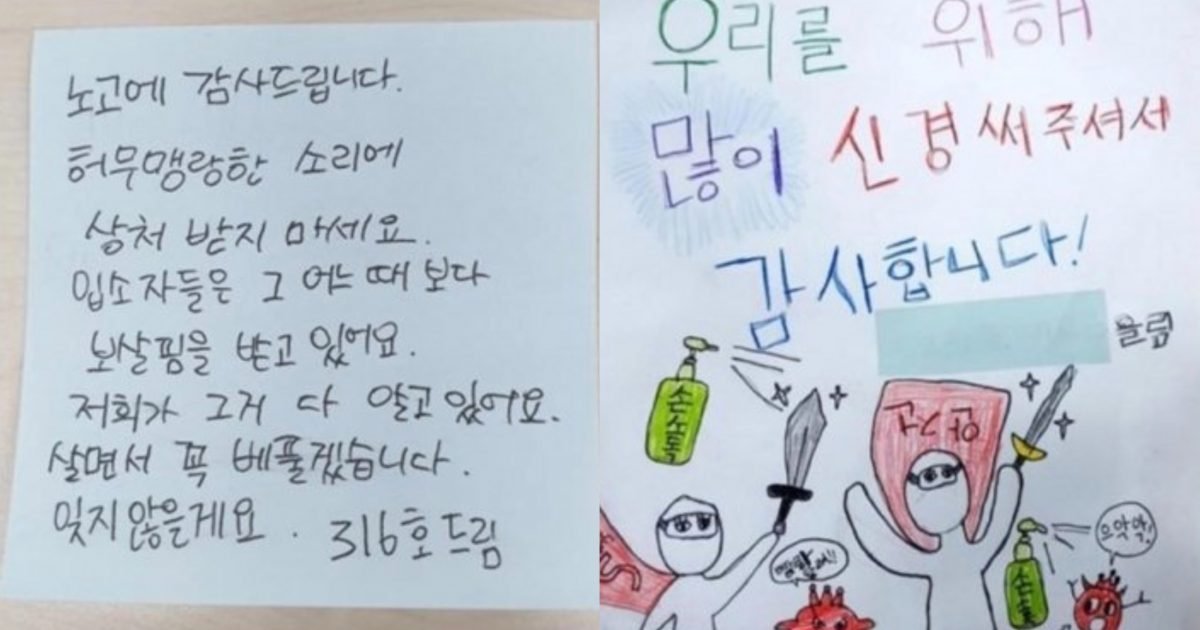 노고에 감사드립니다.
허무맹랑한 소리에
상처 받지 마세요.
입소자들은 그 어느때 보다
보살핌을 받고 있어요.
저희가 그거 다 알고 있어요.
살면서 꼭 베풀겠습니다.
잊지않을게요. 316호 드림
우리를 위해
많이 신경써주셔서
감사합니다!
올림
손소독
손소독
으악악!